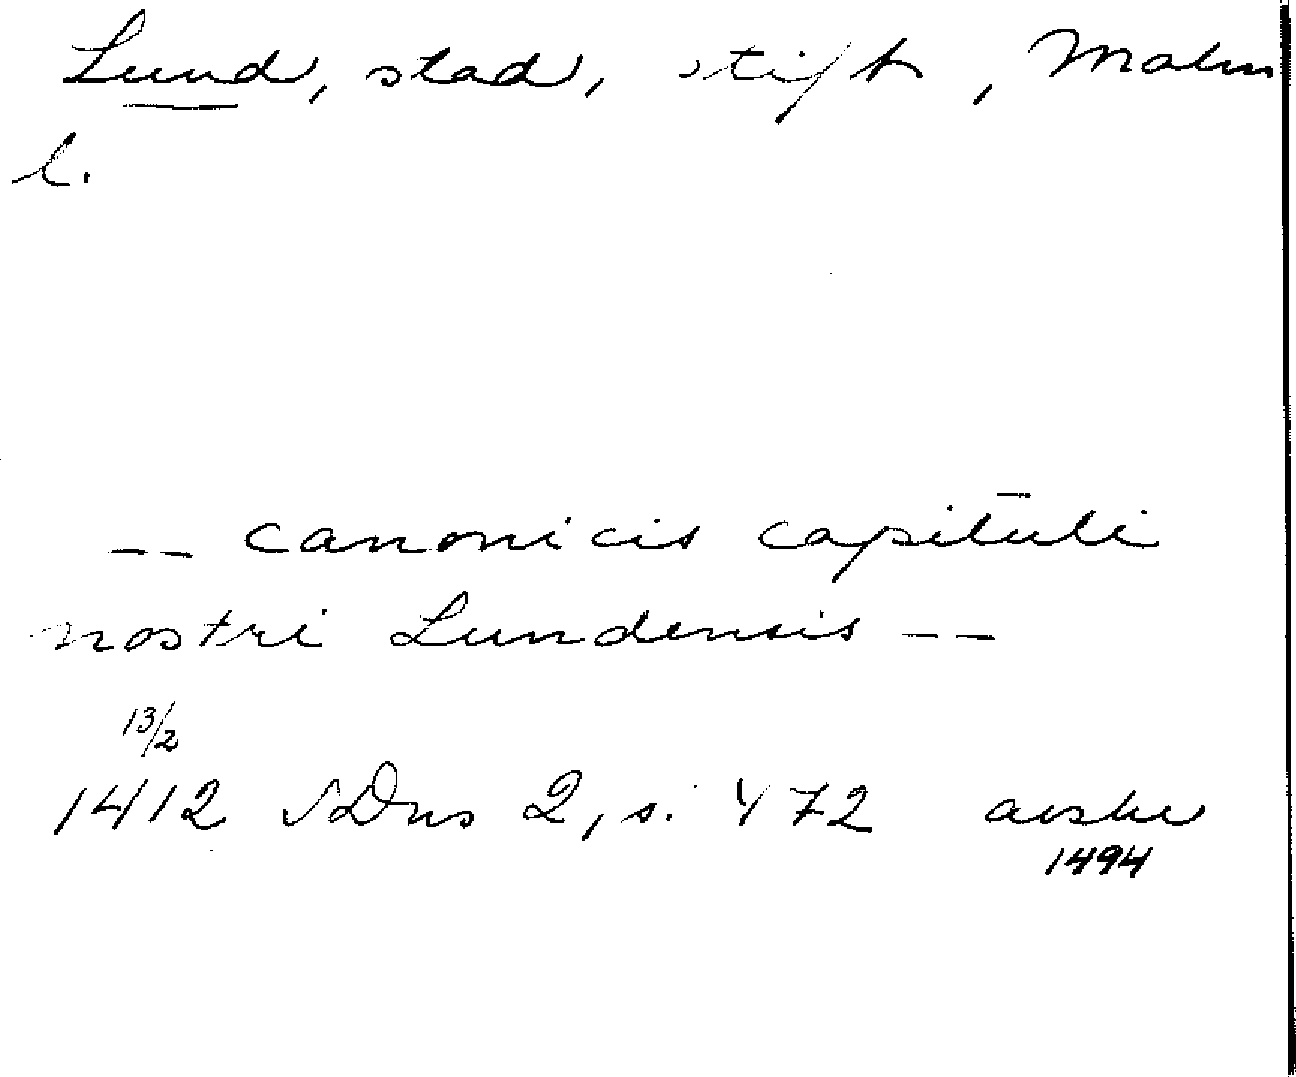 Lund, stad, stift, Malm
l.
-- canonicis capituli
nostri Lundensis --
13/2
1412 SDns 2, s. 472 avskr
1494